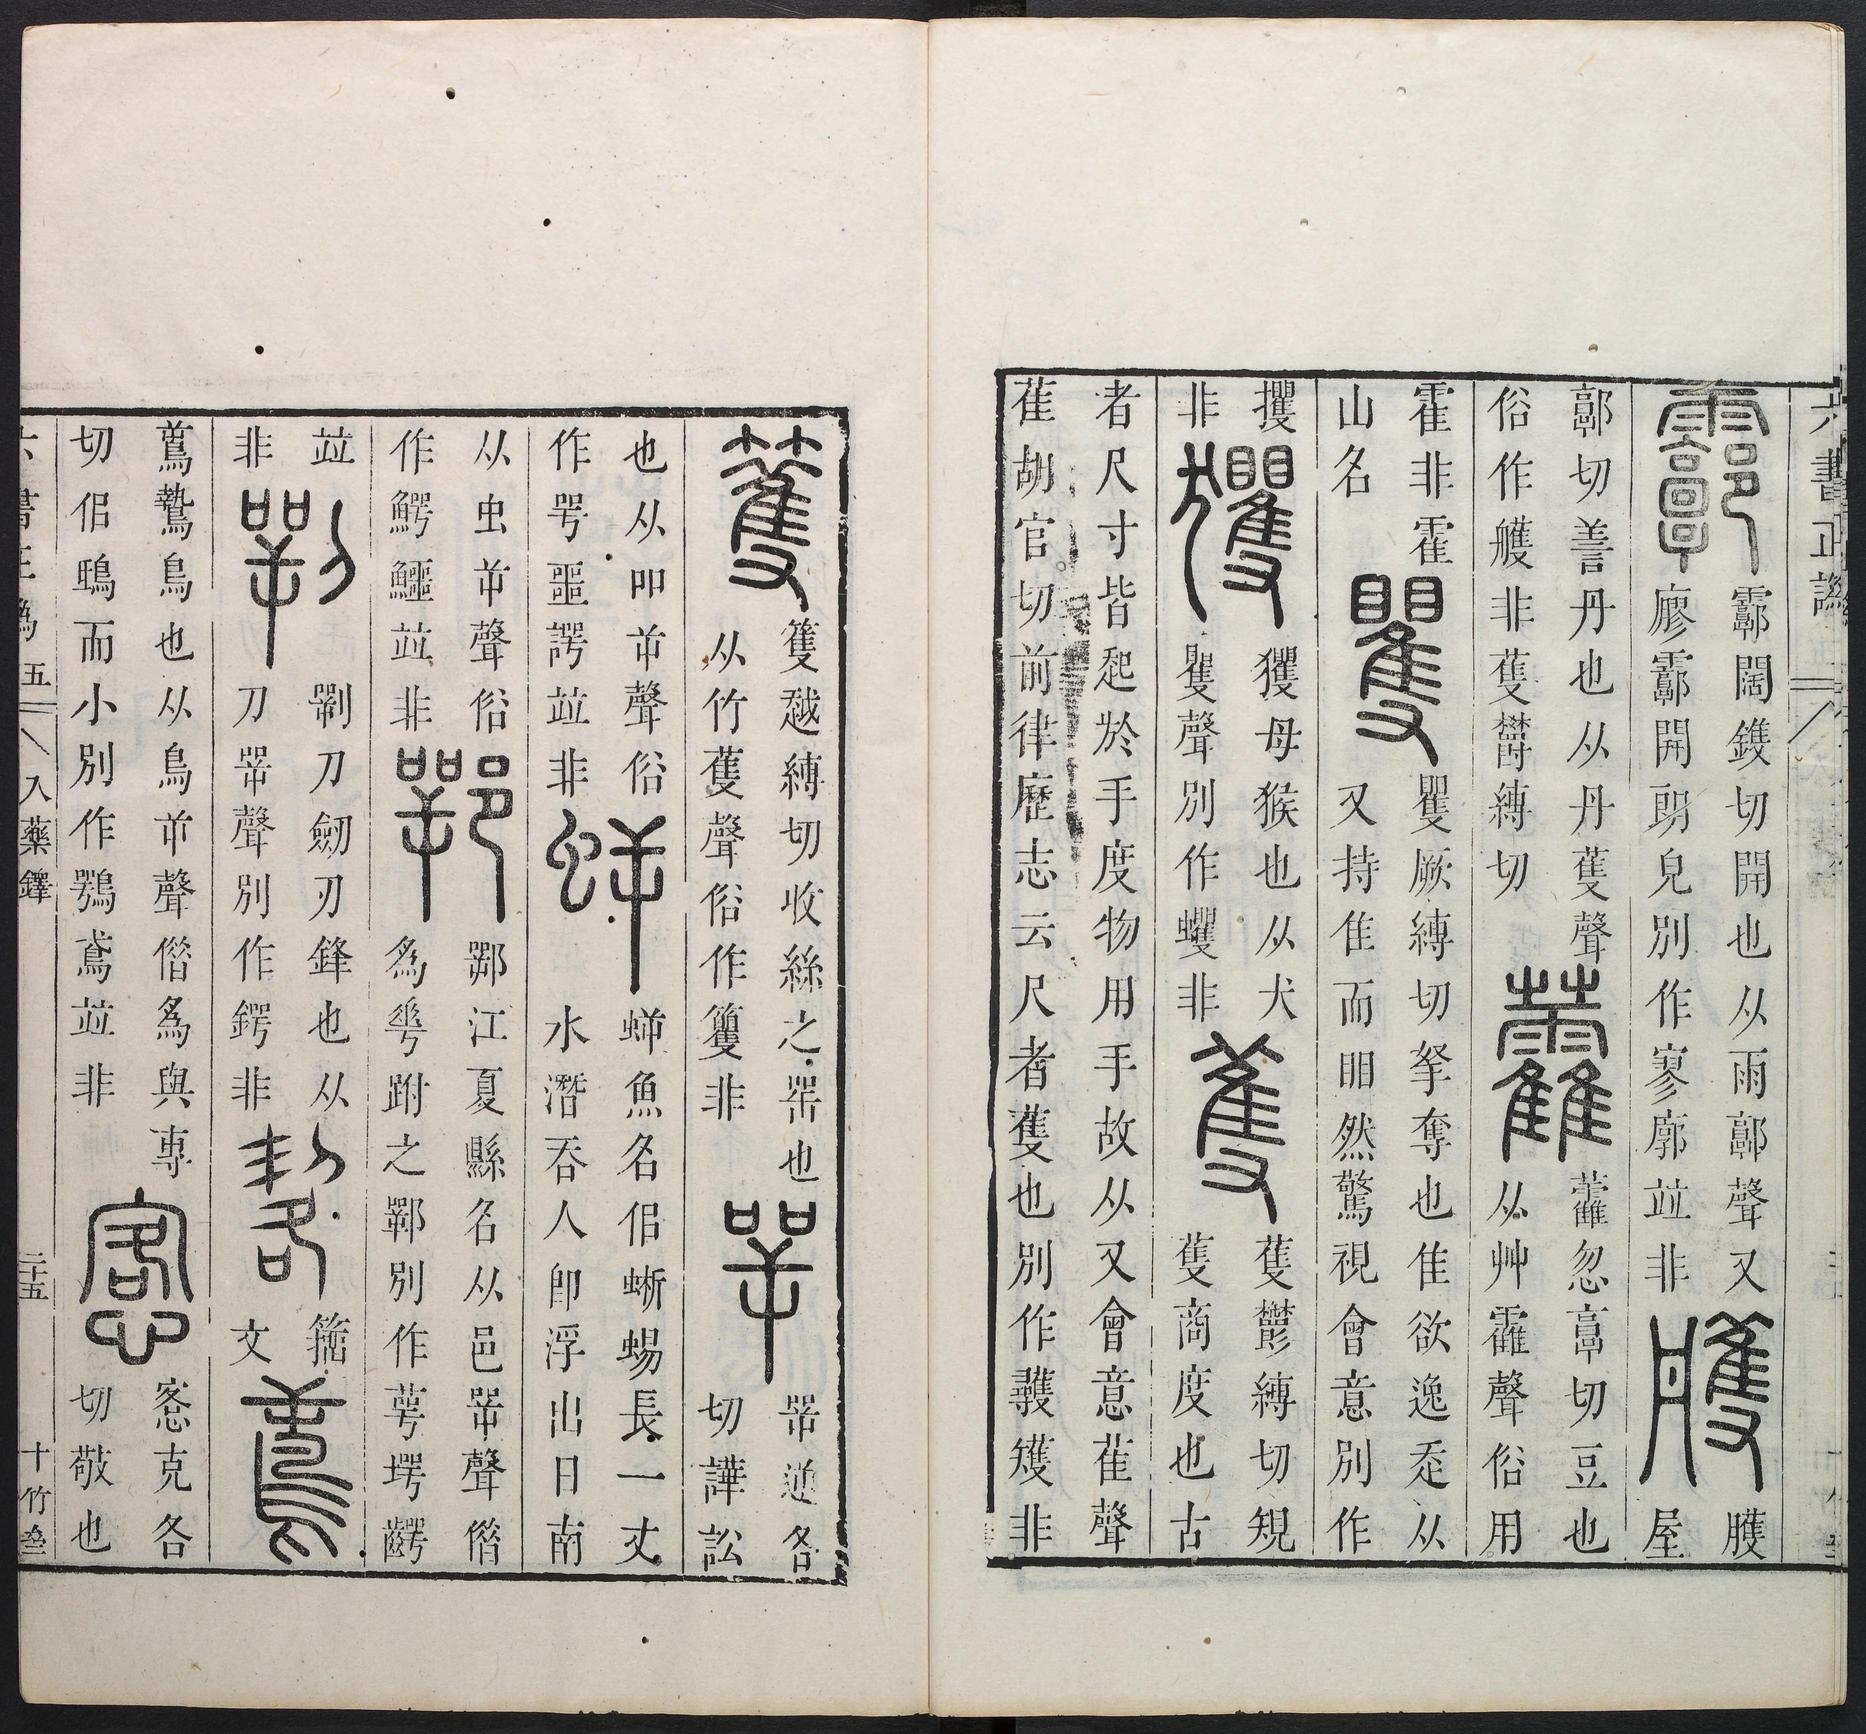 六書正譌
霩
霩闊鑊切開也从雨𩫏聲又
廖霩開朗皃別作寥廓並非
雘
雘屋
𩫏切善丹也从丹蒦聲
俗作艧非蒦欝縛切
藿
藿忽𩫏切豆也
从艸靃聲俗用
霍非霍
山名
矍
矍厥縛切拏奪也隹欲逸走从
又持隹而䀠然驚視會意別作
攫
非
玃
玃母猴也从犬
矍聲別作蠼非
蒦
蒦鬱縛切規
蒦商度也古
者尺寸皆起於手度物用手故从又會意萑聲
萑胡官切前律歷志云尺者蒦也別作彠矱非
籆
籆越縛切收絲之器也
从竹蒦聲俗作籰非
㖾
㖾逆各
切譁訟
也从吅屰聲俗
作咢噩諤並非
𧊜
𧊜魚名佀蜥蜴長一丈
水潛吞人卽浮出日南
从虫屰聲俗
作鰐鱷並非
鄂
鄂江夏縣名从邑㖾聲借
爲華跗之鄂別作萼堮齶
並
非
劅
刀劒刃鋒也从
刀㖾聲別作鍔非
籒
文
鷙鳥也从鳥屰聲借爲與專
切佀鵰而小別作鶚鳶並非
愙
愙克各
切敬也
六書正譌 五 入藥鐸 二十五 十竹齋